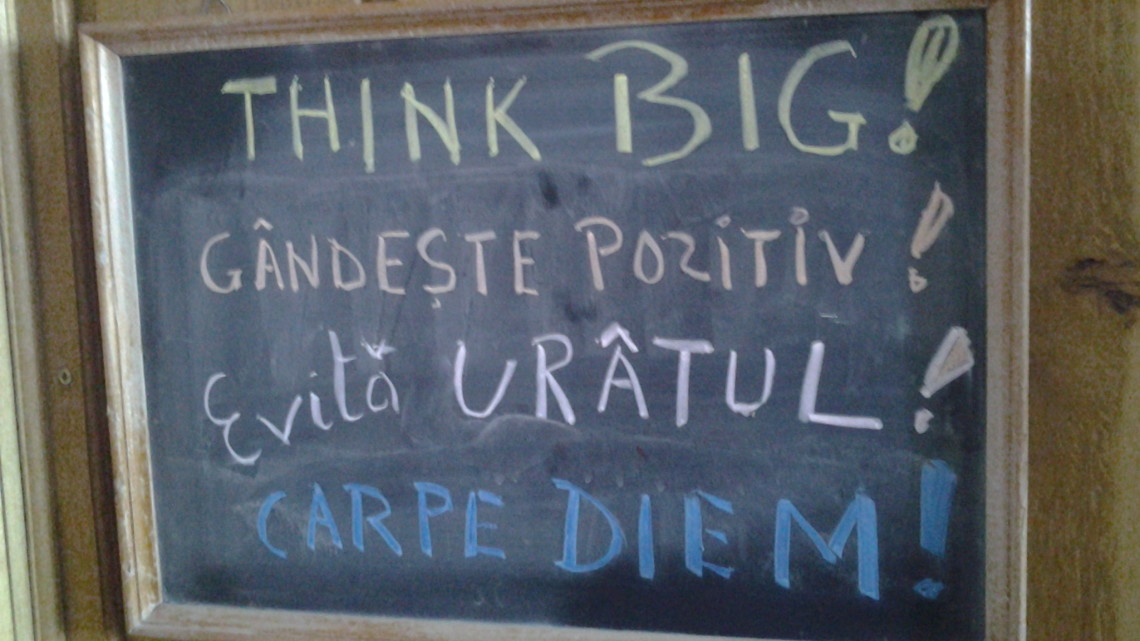 THINK BIG!
GÂNDEȘTE POZITIV!
Evită URÂTUL!
CARPE DIEM!